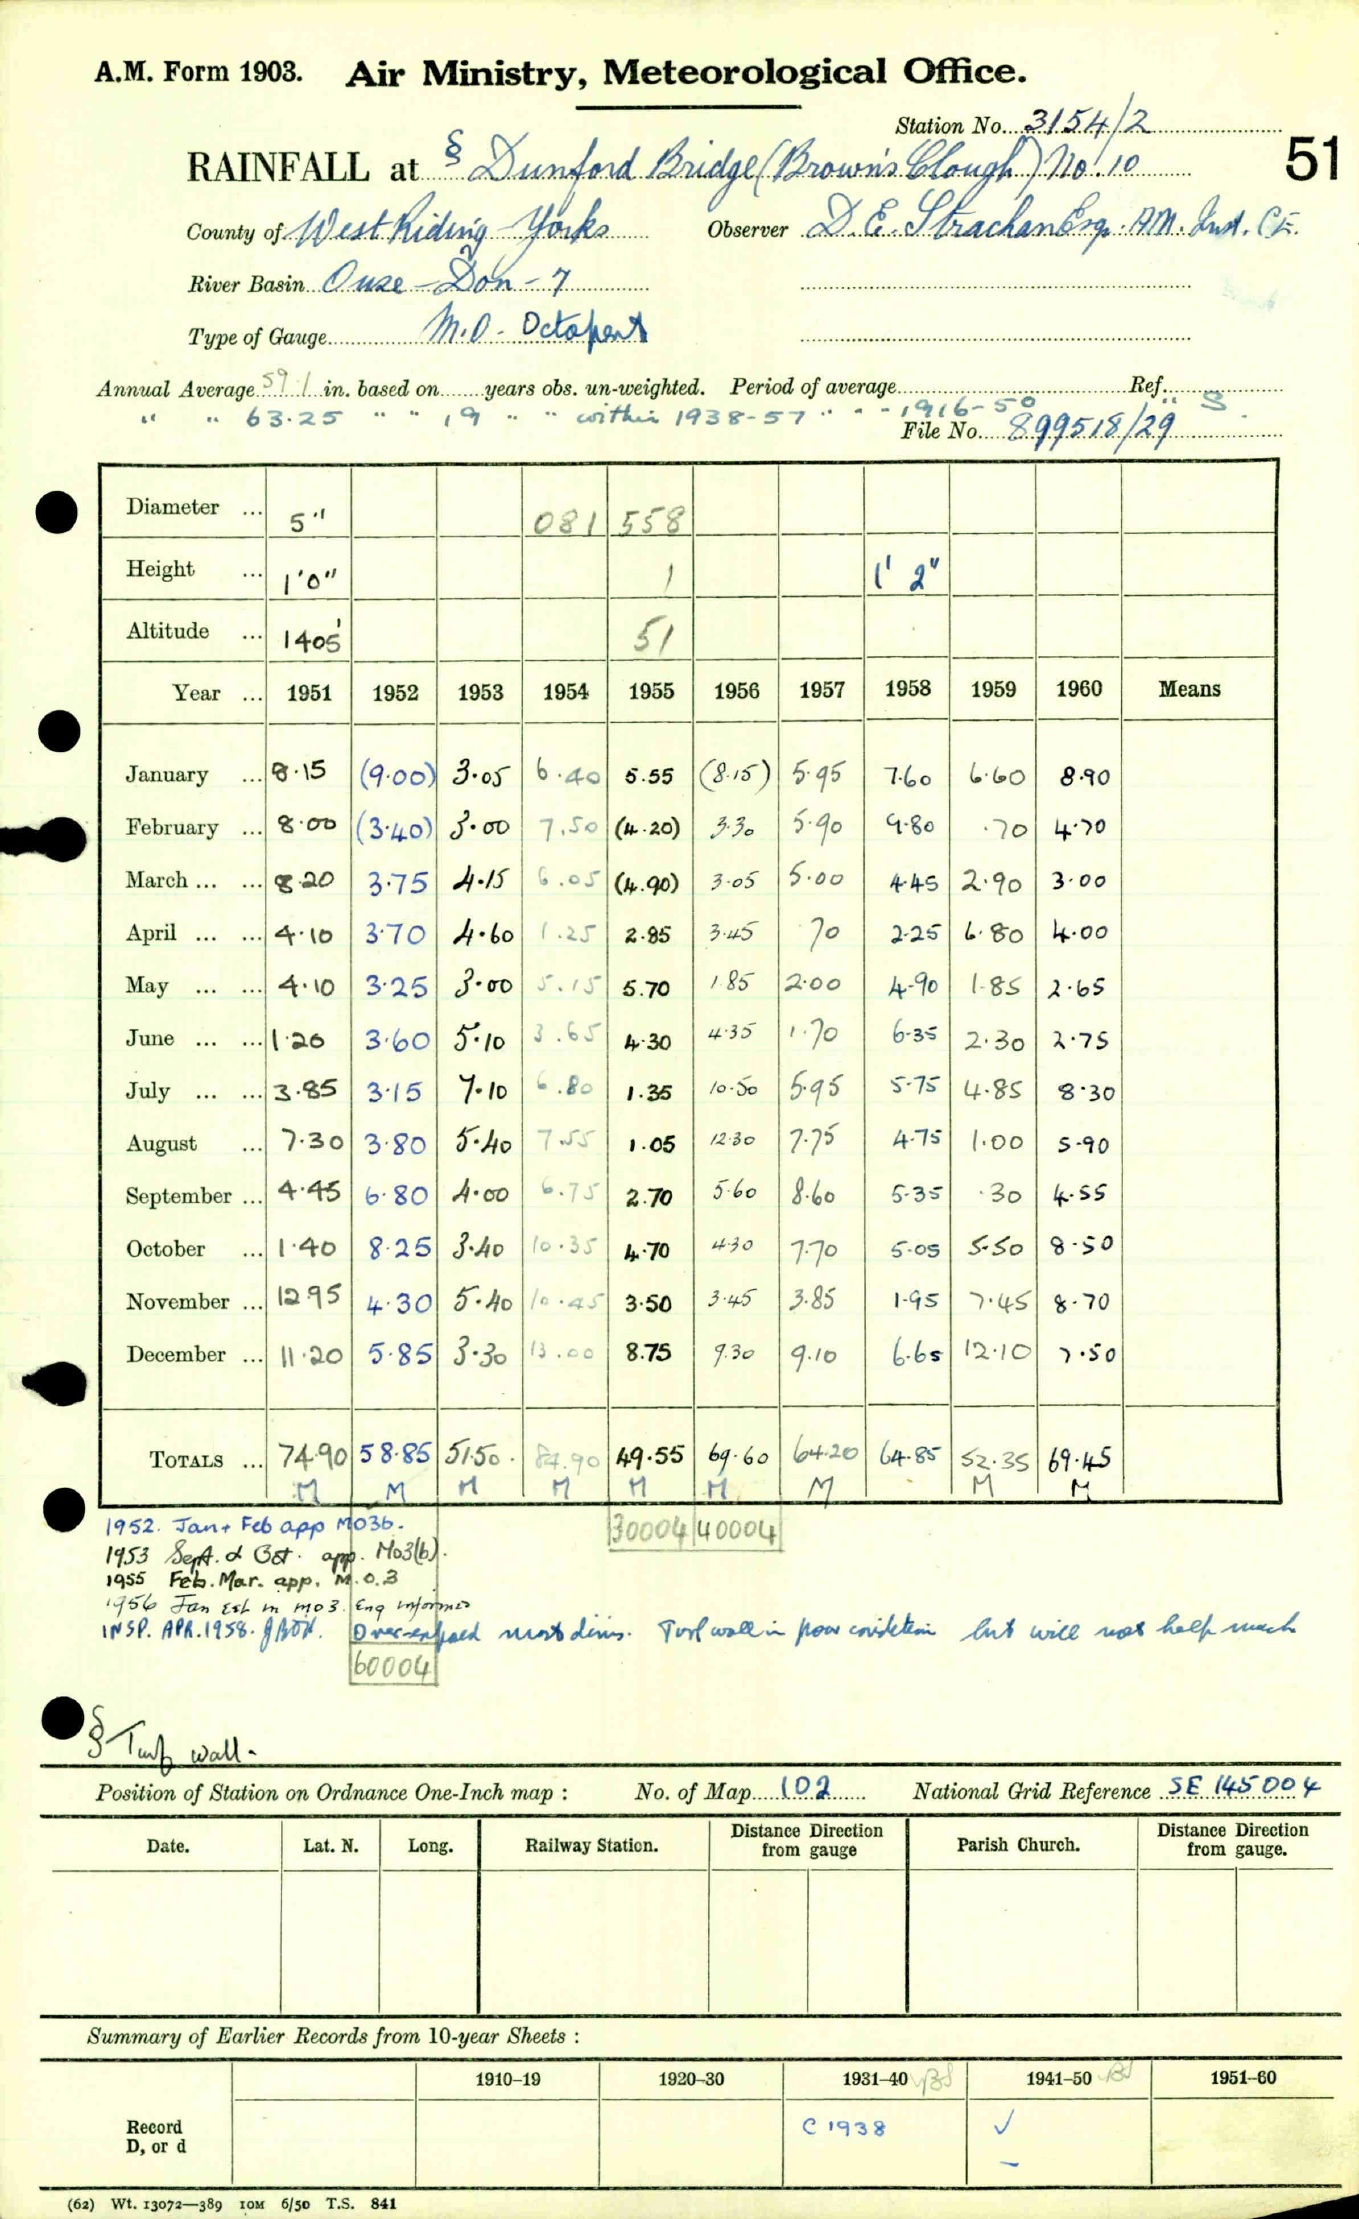 A.M. Form 1903. Air Ministry, Meteorological Office.
Station No. 3154/2
51
RAINFALL at § Dunford Bridge (Brown's Clough) No. 10
County of West Riding Yorks Observer D. E. Strachan Esq. A.M. Inst. C.E.
River Basin Ouse - Don - 7
Type of Gauge M.O. Octapent
Annual Average 59.1 in. based on years obs. un-weighted. Period of average Ref.
" " 63.25 " " 19 " " within 1938-57 " " - 1916-50 " S.
File No. 899518/29
Diameter ... 5" 081 558
Height ... 1'0" 1 1' 2"
Altitude ... 1405' 51
Year ... 1951 1952 1953 1954 1955 1956 1957 1958 1959 1960 Means
January ... 8.15 (9.00) 3.05 6.40 5.55 (8.15) 5.95 7.60 6.60 8.90
February ... 8.00 (3.40) 3.00 7.50 (4.20) 3.30 5.90 9.80 .70 4.70
March ... ... 8.20 3.75 4.15 6.05 (4.90) 3.05 5.00 4.45 2.90 3.00
April ... ... 4.10 3.70 4.60 1.25 2.85 3.45 .70 2.25 6.80 4.00
May ... ... 4.10 3.25 3.00 5.15 5.70 1.85 2.00 4.90 1.85 2.65
June ... ... 1.20 3.60 5.10 3.65 4.30 4.35 1.70 6.35 2.30 2.75
July ... ... 3.85 3.15 7.10 6.80 1.35 10.50 5.95 5.75 4.85 8.30
August ... 7.30 3.80 5.40 7.55 1.05 12.30 7.75 4.75 1.00 5.90
September ... 4.45 6.80 4.00 6.75 2.70 5.60 8.60 5.35 .30 4.55
October ... 1.40 8.25 3.40 10.35 4.70 4.30 7.70 5.05 5.50 8.50
November ... 12.95 4.30 5.40 10.45 3.50 3.45 3.85 1.95 7.45 8.70
December ... 11.20 5.85 3.30 13.00 8.75 9.30 9.10 6.65 12.10 7.50
TOTALS ... 74.90 58.85 51.50 84.90 49.55 69.60 64.20 64.85 52.35 69.45
M M M M M M M M M
30004 40004
1952. Jan + Feb app MO3b.
1953 Sept. & Oct. app. Mo3(b).
1955 Feb. Mar. app. M.O.3
1956 Jan Est in mo3. Eng informed
INSP. APR. 1958. Over-exposed most dirns. Turf wall in poor condition but will not help much
60004
§ Turf wall.
Position of Station on Ordnance One-Inch map : No. of Map 102 National Grid Reference SE 145004
Date. Lat. N. Long. Railway Station. Distance Direction from gauge Parish Church. Distance Direction from gauge.
Summary of Earlier Records from 10-year Sheets :
1910-19 1920-30 1931-40 1941-50 1951-60
Record D, or d C 1938 ✓
–
(62) Wt. 13072—389 10M 6/50 T.S. 841